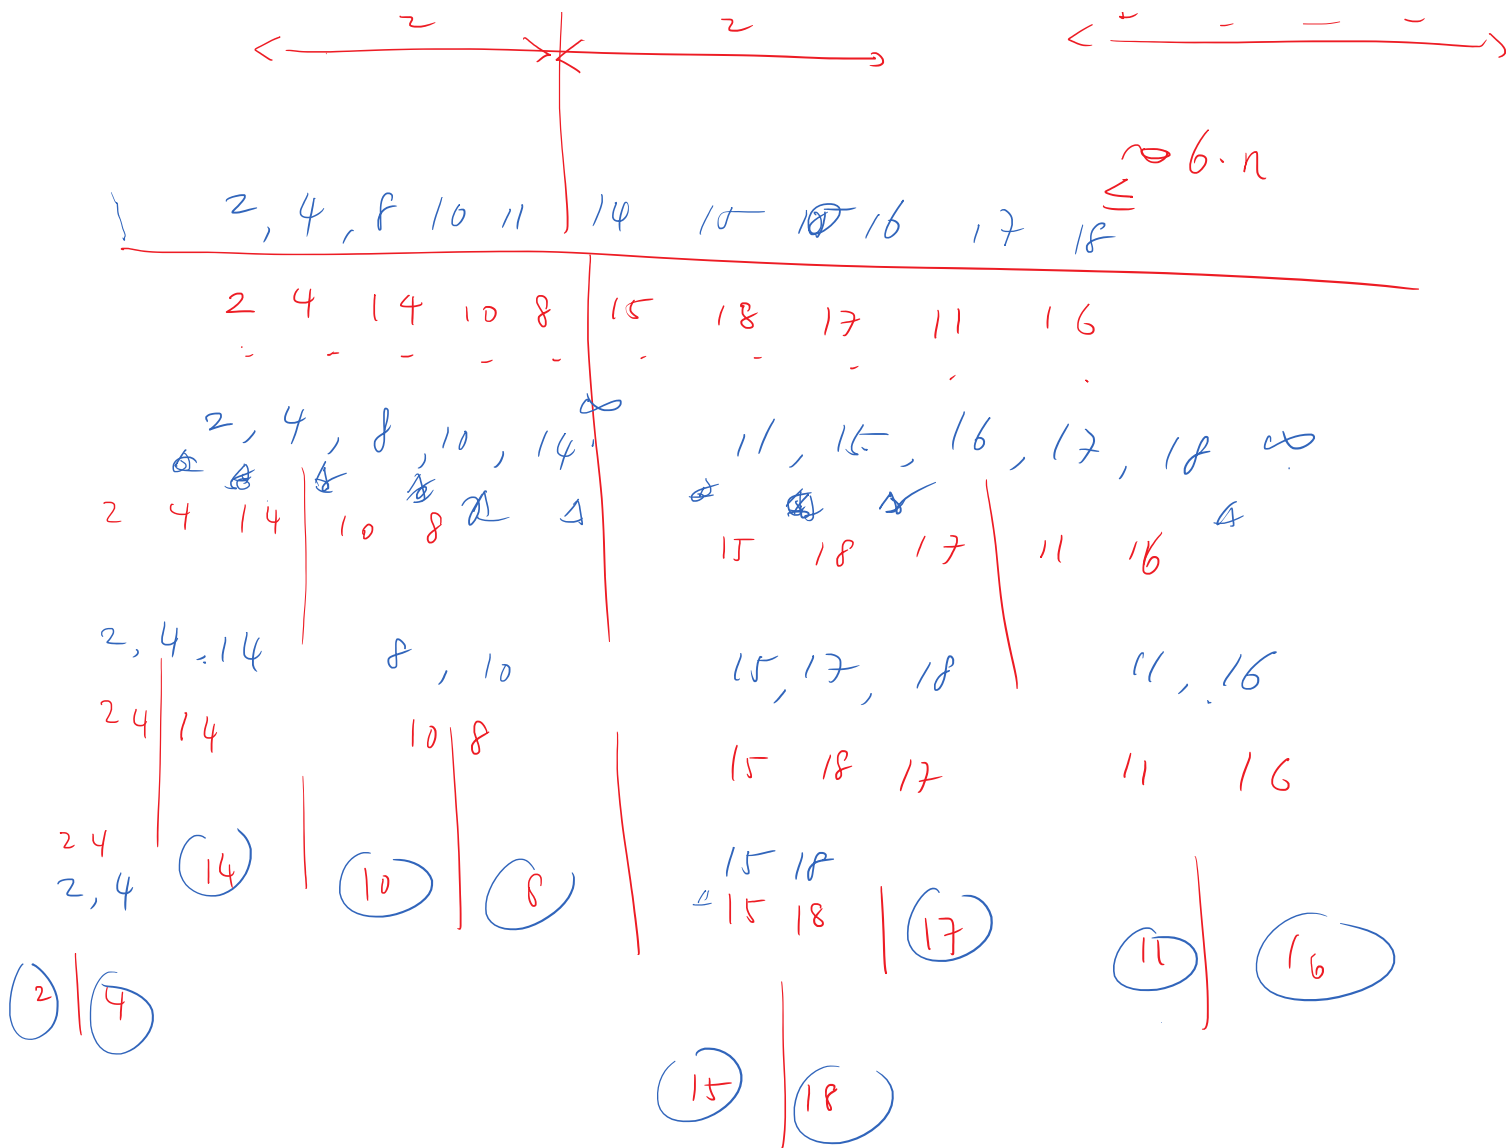 2 2
6 · n
≤
2, 4, 8 10 11 14 15 16 17 18
2 4 14 10 8 15 18 17 11 16
2, 4, 8, 10, 14 ∞ 11, 15, 16, 17, 18 ∞
2 4 14 10 8 15 18 17 11 16
2, 4, 14 8, 10 15, 17, 18 11, 16
2 4 14 10 8 15 18 17 11 16
2 4 14 10 8 15 18
2, 4 15 18 17 11 16
2 4
15 18